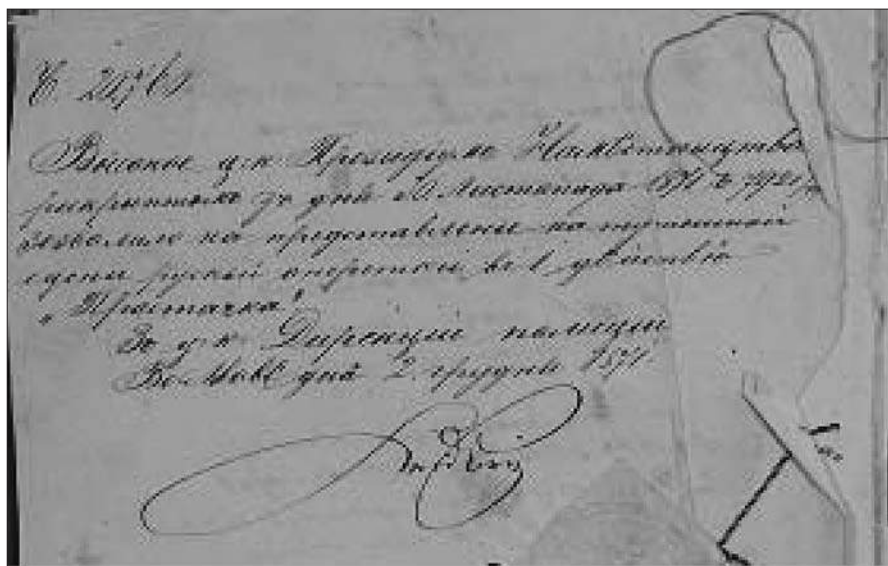 Ч. 20761
Высокое ц. к. Президіумъ Намѣстництва
рескриптомъ зъ дня 30 Листопада 1871 Ч.
дозволило на представленье на тутешной
сцени руской оперетки въ 1 дѣйствію
„Простачка“.
Зъ ц. к. Дирекціи полиціи
Во Львовѣ дня 2. грудня 1871